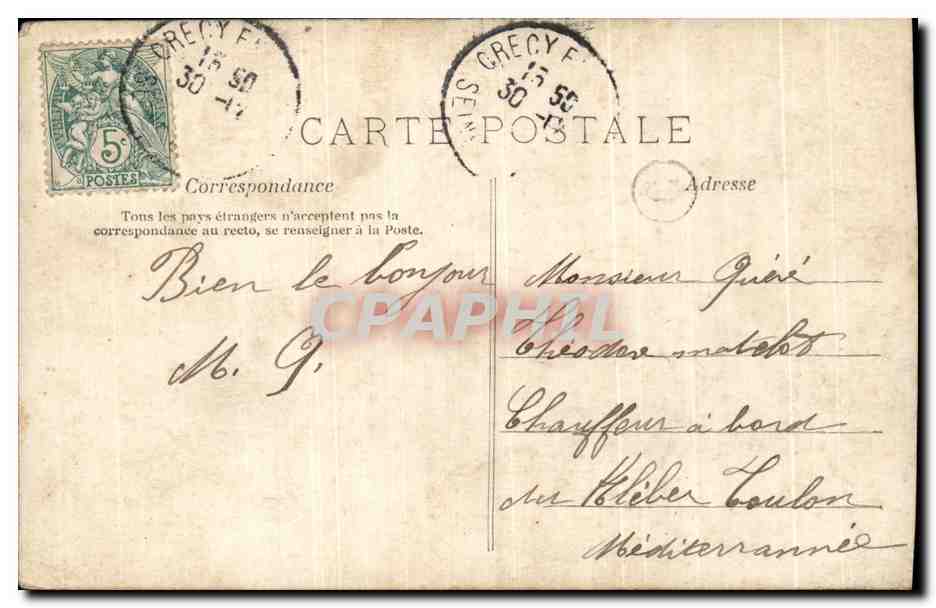 CRECY E
15 50
30 -
CRECY E
15 50
30 -
SEIN
5c
POSTES
CARTE POSTALE
Correspondance
Tous les pays étrangers n'acceptent pas la
correspondance au recto, se renseigner à la Poste.
Bien le bonjour
M. G.
Adresse
Monsieur Quéré
Théodore matelot
Chauffeur à bord
du Kléber Toulon
Méditerrannée
CPAPHIL